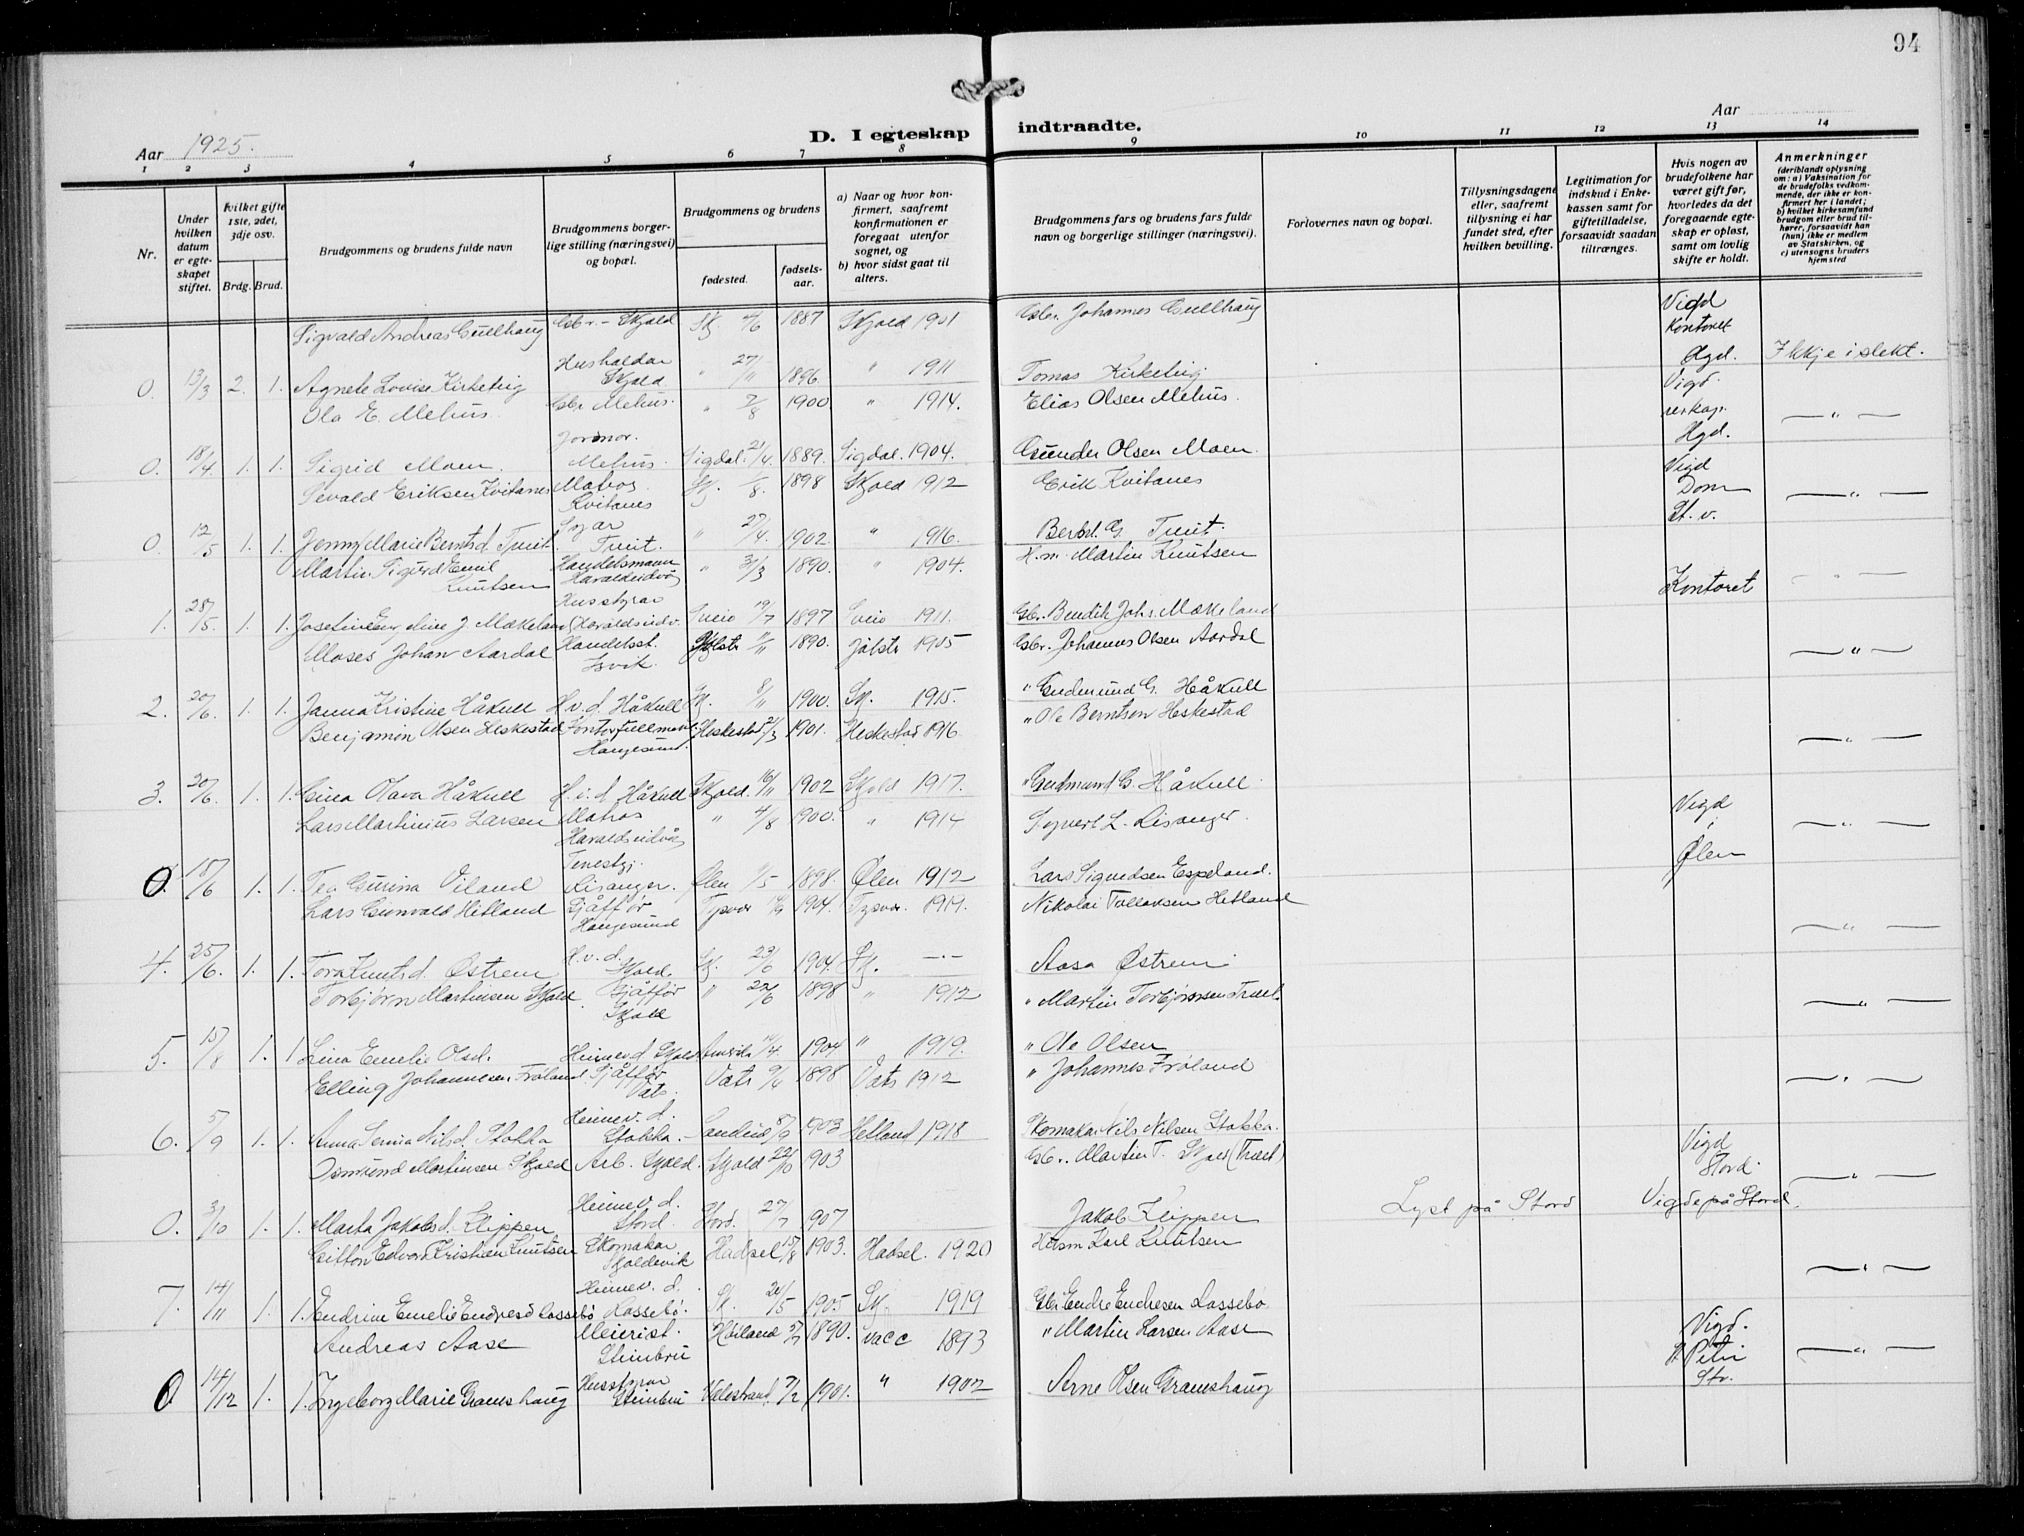 94
Aar 1925.
D. I egteskap indtraadte.
Aar
1 2 3 4 5 6 7 8 9 10 11 12 13 14
Nr.
Under hvilken datum er egteskapet stiftet.
Hvilket gifte 1ste, 2det, 3dje osv.
Brdg. Brud.
Brudgommens og brudens fulde navn
Brudgommens borgerlige stilling (næringsvei) og bopæl.
Brudgommens og brudens
fødested. fødsels-aar.
a) Naar og hvor konfirmert, saafremt konfirmationen er foregaat utenfor sognet, og
b) hvor sidst gaat til alters.
Brudgommens fars og brudens fars fulde navn og borgerlige stillinger (næringsvei).
Forlovernes navn og bopæl.
Tillysningsdagene eller, saafremt tillysning ei har fundet sted, efter hvilken bevilling.
Legitimation for indskud i Enkekassen samt for giftetilladelse, forsaavidt saadan tiltrænges.
Hvis nogen av brudefolkene har været gift før, hvorledes da det foregaaende egteskap er opløst, samt om lovlig skifte er holdt.
Anmerkninger
(deriblandt oplysning om: a) Vaksination for de brudefolks vedkommende, der ikke er konfirmert her i landet; b) hvilket kirkesamfund brudgom eller brud tilhører, forsaavidt han (hun) ikke er medlem av Statskirken, og c) utensogns bruders hjemsted
Sigvald Andreas Gullhaug Gbr. - Skjold Sk. 4/6 1887 Skjold 1901 Gbr. Johannes Gullhaug Vigd Kontoret
0. 13/3 2. 1. Agnete Lovise Kirketeig Husholdar Skjold " 27/11 1896 " 1911 Tomas Kirketeig Hgd. Ikkje i slekt.
Ola E. Mehus. Gbr Mehus. " 2/8 1900. " 1914. Elias Olsen Mehus. Vigd.
0. 18/4 1. 1. Sigrid Moen. Jordmor. Mehus. Sigdal 21/4 1889. Sigdal. 1904. Gunder Olsen Moen Hgd. — " —
Sevald Eriksen Kvitanes Matros. Kvitanes Sk. 1/8. 1898 Skjold 1912 Erik Kvitanes Vigd Dom
0. 12/5 1. 1. Jenny Marie Berntsd. Tveit. Syar Tveit. " 27/4. 1902. " 1916. Bernt G. Tveit. St. v. — " —
Martin Sigurd Emil Knutsen Handelsmann Haraldseidvåg " 31/3 1890. " 1904. H.m. Martin Knutsen
1. 28/5. 1. 1. Josefine J. Mækeland Husstyrar Haraldseidv. Sveio 19/7 1897 Sveio 1911. Gbr. Bendik Johs. Mækeland Kontoret — " —
Moses Johan Aardal Handelsst. Isvik. Jølstr 11/11 1890. Jølstr 1905 Gbr. Johannes Olsen Aardal
2. 20/6. 1. 1. Janna Kristine Håkull H.v.d. Håkull Sk. 8/11 1900. Sk. 1915. " Gudmund G. Håkull — " —
Benjamin Olsen Heskestad Kontorfullmekt. Haugesund. Heskestad 2/3 1901. Heskestad 1916. " Ole Berntsen Heskestad
3. 20/6. 1. 1. Gina Olava Håkull H.v.d. Håkull Skjold. 16/11 1902 Skjold 1917. " Gudmund G. Håkull. — " —
Lars Martinius Larsen Matros Haraldseidvåg " 4/8 1900. " 1914 Sigvert L. Risanger. Vigd
0. 18/6 1. 1. Tea Gurina Viland Tenestgj. Risanger. Ølen 11/5 1898. Ølen 1912 Lars Sigurdsen Espeland. i Ølen — " —
Lars Gunvald Hetland Sjåffør Haugesund Tysvær 1904. Tysvær. 1919. Nikolai Tollaksen Hetland
4. 25/6. 1. 1. Tora Knutsd. Østrem H.v.d. Skjold. Sk. 23/6 1904. Sk. — . — Aasa Østrem. — " —
Torbjørn Martinsen Skjold Sjåffør Skjold " 22/6 1898 " 1912 " Martin Torbjørnsen Træet.
5. 15/8 1. 1 Lina Emelie Olsd. Heimev.d. Skjold Amerika 10/4. 1904 " 1919. " Ole Olsen — " —
Elling Johannesen Frøland Sjåffør Vats. Vats 9/6 1898 Vats 1912 " Johannes Frøland
6. 5/9 1. 1. Anna Serina Nilsd. Stokka Heimev. d. Stokka. — Sandeid 8/9 1903 Hetland 1918 Skomakar Nils Nilsen Stokka. — " —
Osmund Martinsen Skjold Arb. Skjold. Skjold 22/10 1903 Gbr. Martin T. Skjold (Træet) Vigd Stord.
0. 3/10 1. 1. Marta Jakobsd. Klippen Heimev. d. Stord. Stord. 27/7 1907 Jakob Klippen Lyst på Stord Vigde på Stord. — " —
Gitton Edvard Kristian Knutsen Skomakar Skjoldevik Hadsel 15/8 1903. Hadsel. 1920 Husm Karl Knutsen
7. 14/11 1. 1. Endrine Emelie Endresd Lassebø Heimev. d. Lassebø. Sk. 21/5 1905 Sk. 1919 Gbr Endre Endresen Lassebø. — " —
Andreas Aase Meierist. Steinbru Høiland 2/7 1890. vacc 1893 " Martin Larsen Aase Vigd.
0 14/12 1. 1. Ingeborg Marie Gramshaug Husstyrar Steinbru Valestrand, 7/2 1901. " 1902 Arne Olsen Gramshaug St Petri Stv. — " —